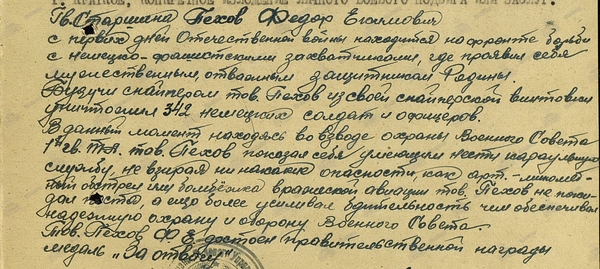 I. КРАТКОЕ, КОНКРЕТНОЕ ИЗЛОЖЕНИЕ ЛИЧНОГО БОЕВОГО ПОДВИГА ИЛИ ЗАСЛУГ.
Гв. Старшина Пехов Федор
с первых дней Отечественной войны находится на фронте борьбы
с немецко-фашистскими захватчиками, где проявил себя
мужественным, отважным защитником Родины.
Будучи снайпером тов. Пехов из своей снайперской винтовки
уничтожил 342 немецких солдат и офицеров.
В данный момент находясь во взводе охраны Военного Совета
1й гв. Т.А. тов. Пехов показал себя умеющим нести караульную
службу, не взирая ни на какие опасности, как арт.-миномет-
ный обстрел или бомбежка вражеской авиации тов. Пехов не поки-
дал поста, а еще более усиливал бдительность чем обеспечивал
надежную охрану и оборону Военного Совета.
Тов. Пехов Ф.Е. достоен правительственной награды
медаль „За отвагу"